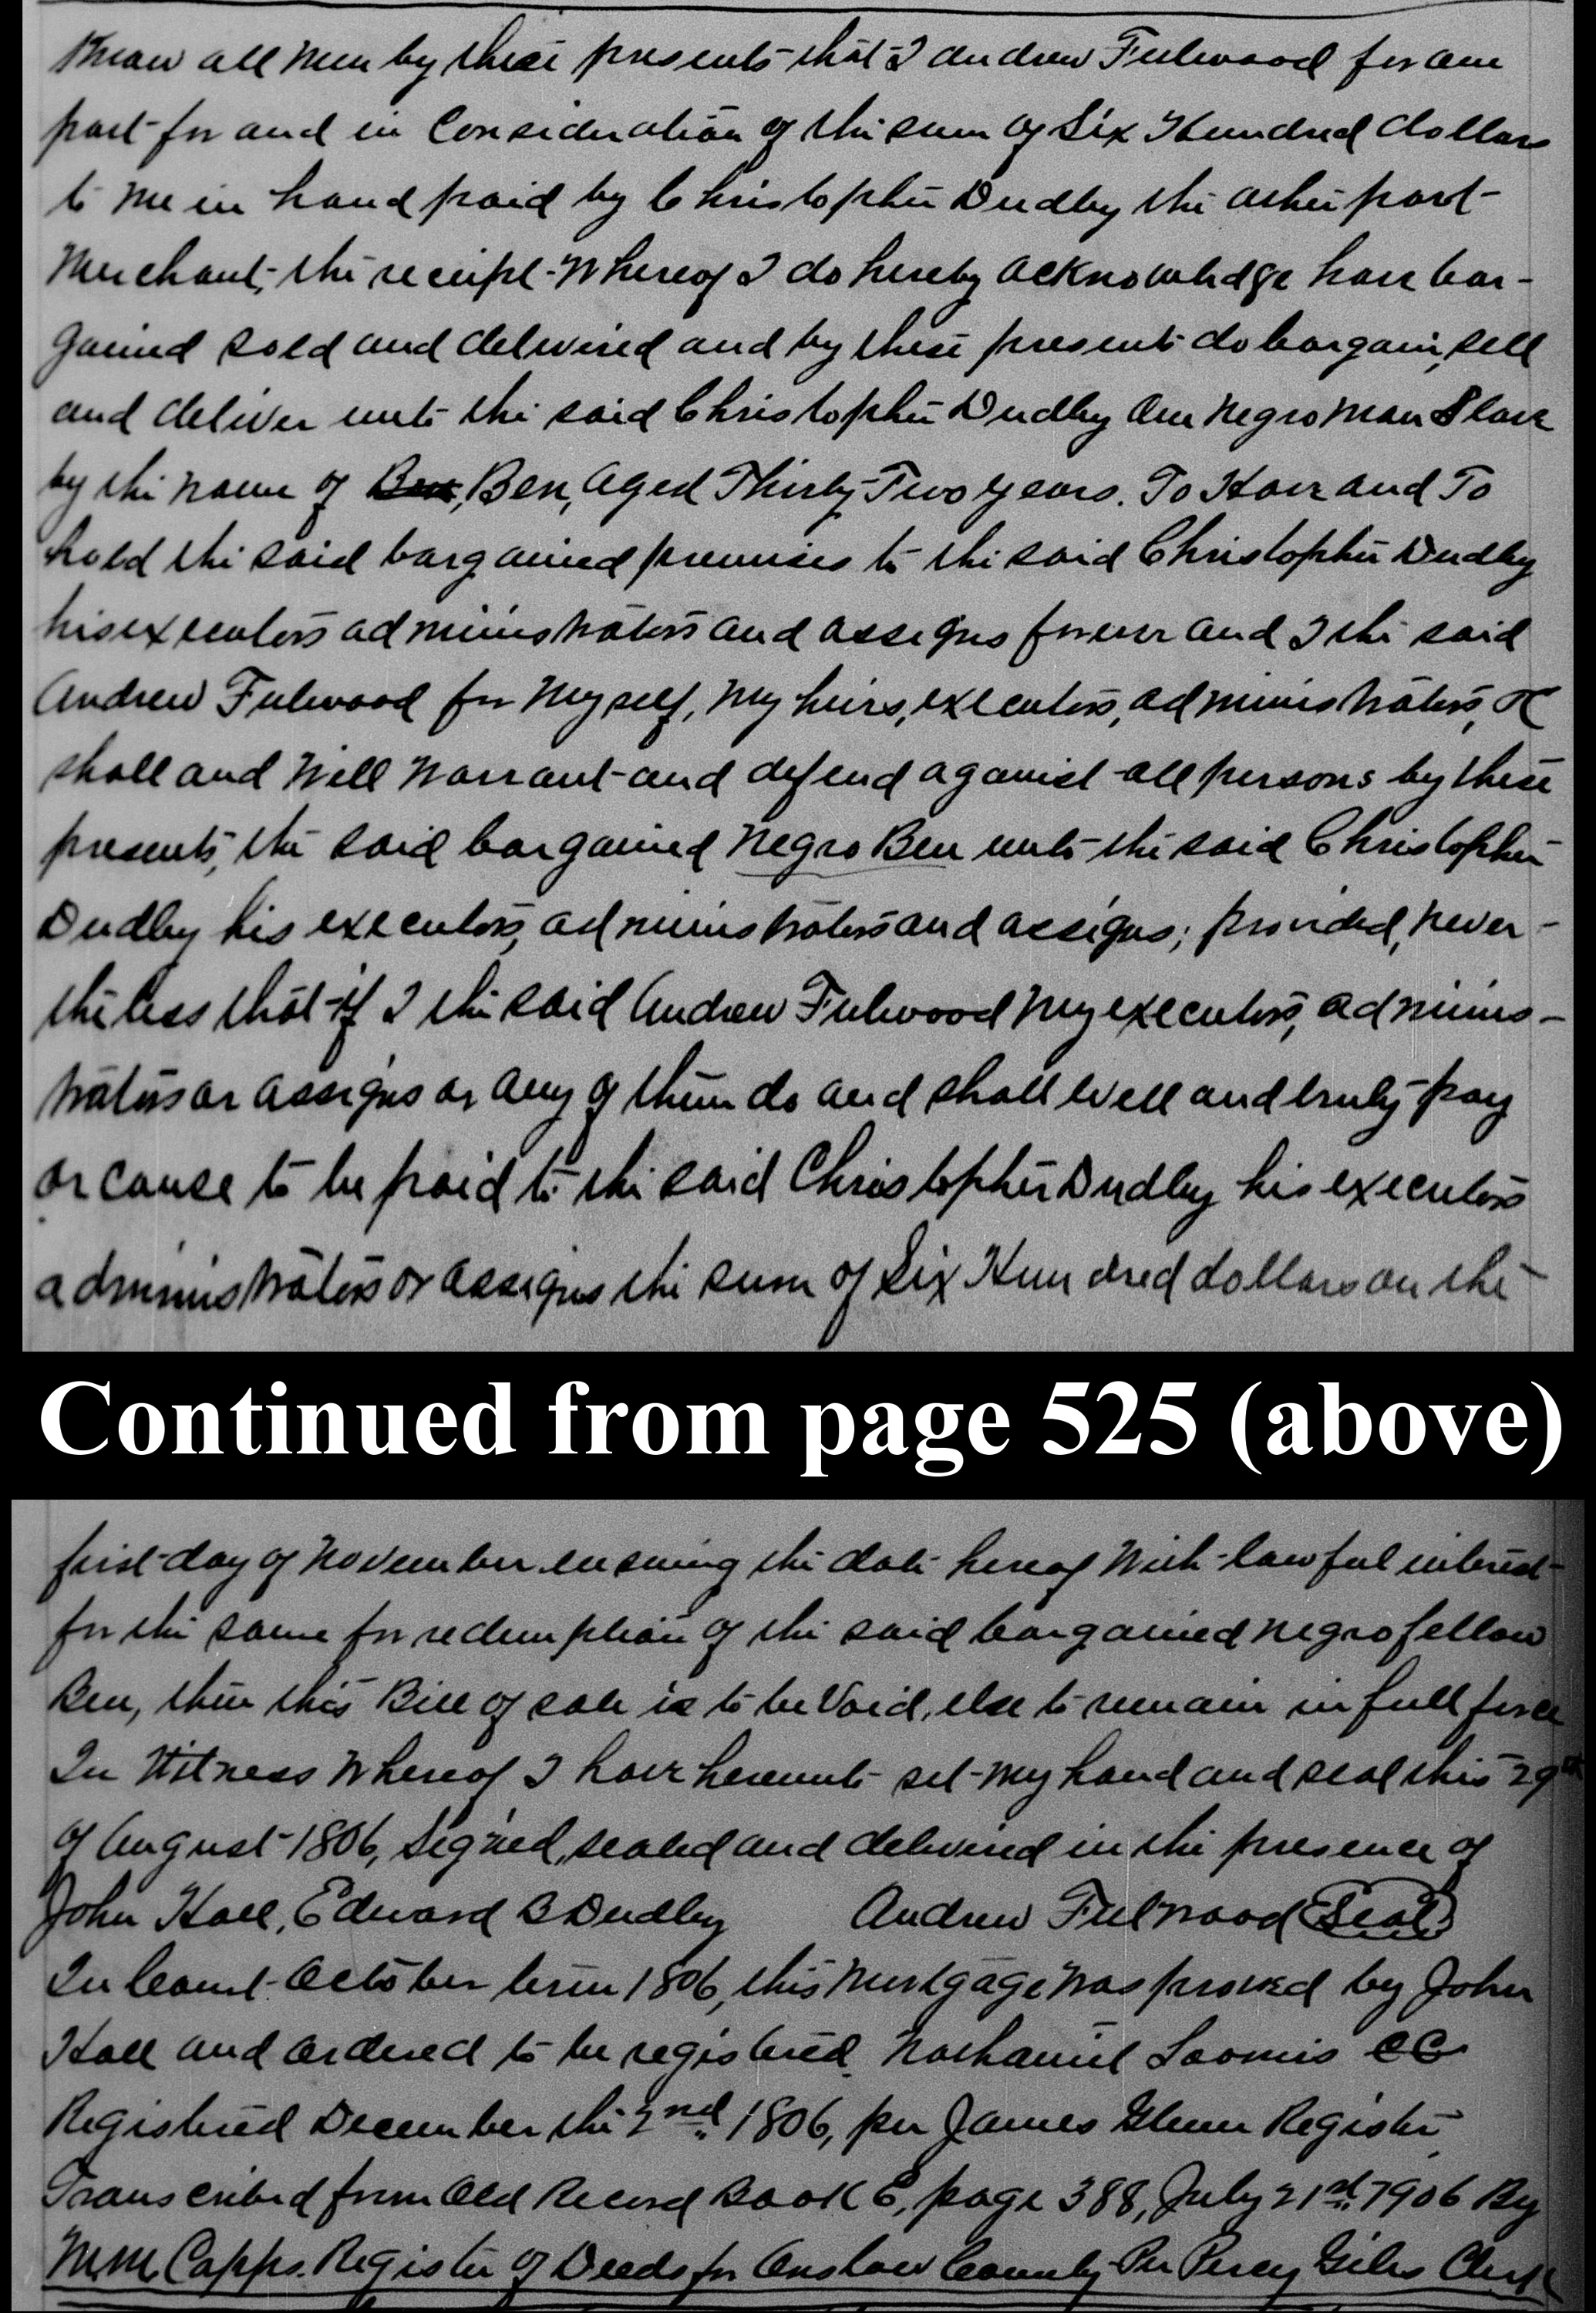 Know all men by these presents that I Andrew Fulwood for one
part for and in Consideration of the sum of Six Hundred dollars
to me in hand paid by Christopher Dudley the other part
Merchant, the receipt Whereof I do hereby acknowledge have bar-
gained sold and delivered and by these presents do bargain, sell
and deliver unto the said Christopher Dudley One Negro Man Slave
by the name of Ben, Aged Thirty-Two years. To Have and To
hold the said bargained premises to the said Christopher Dudley
his executors administrators and assigns forever and I the said
Andrew Fulwood for Myself, My heirs, executors, administrators, &
shall and Will Warrant and defend against all persons by these
presents, the said bargained Negro Ben unto the said Christopher
Dudley his executors, administrators and assigns; provided, never-
theless that if I the said Andrew Fulwood My executors, adminis-
trators or assigns or any of them do and shall well and truly pay
or cause to be paid to the said Christopher Dudley his executors
administrators or assigns the sum of Six Hundred dollars on the
Continued from page 525 (above)
first day of November ensuing the date hereof With lawful interest
for the same for redemption of the said bargained negro fellow
Ben, then this Bill of sale is to be Void, else to remain in full force
In Witness Whereof I have hereunto set My hand and seal this 29th
of August 1806, Signed, sealed and delivered in the presence of
John Hall, Edward B Dudley Andrew Fulwood (Seal)
In Court October term 1806, this Mortgage Was proved by John
Hall and ordered to be registered. Nathaniel Loomis CC
Registered December the 2nd, 1806, per James Glenn Register
Transcribed from Old Record Book E, page 388, July 21st, 1906 By
M.M. Capps. Register of Deeds for Onslow County Per Percy Giles Clerk